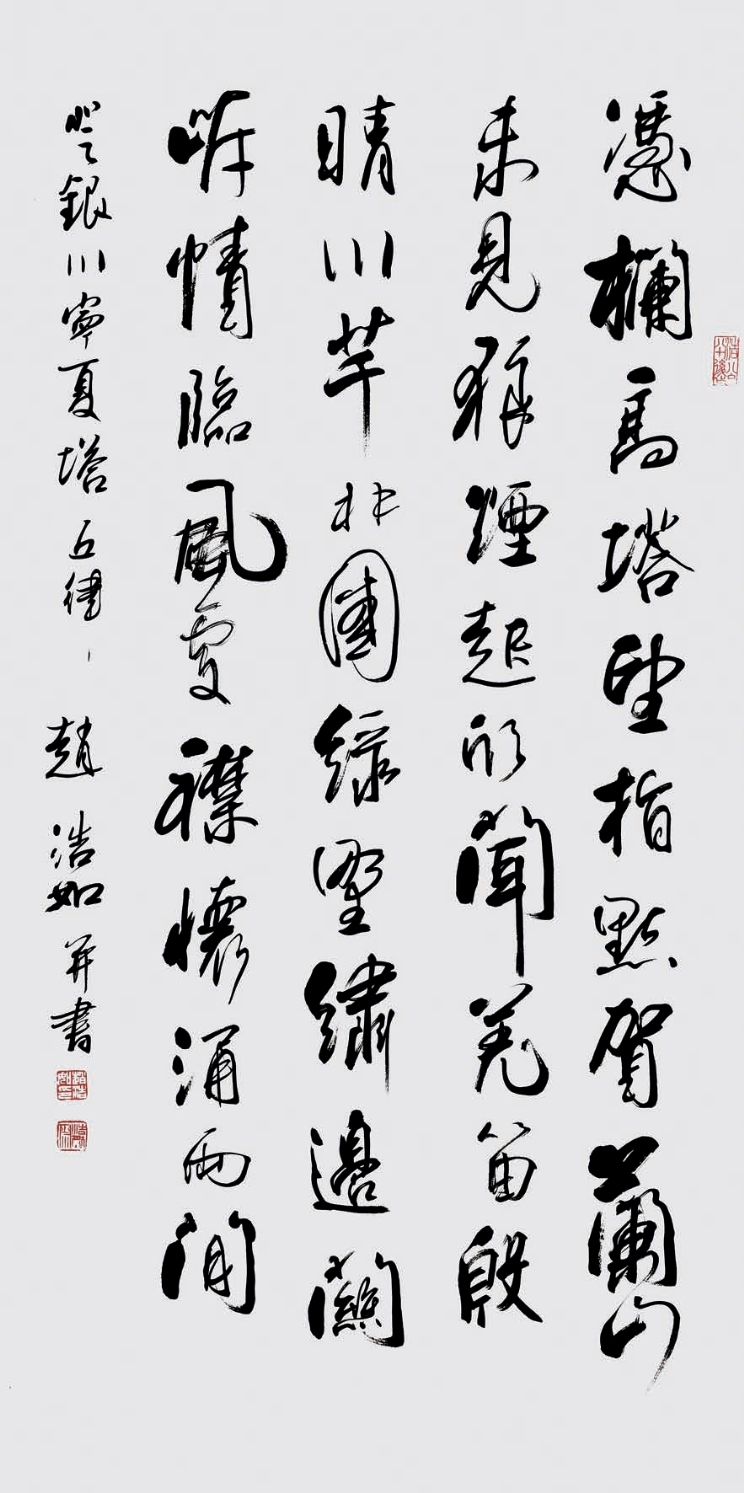 憑欄高塔望指點賀蘭山
未見狼煙起欣聞羌笛殷
晴川芊北國綠墅繡邊關
情臨風處襟懷涌兩間
登銀川寧夏塔 五律、 趙浩如并書